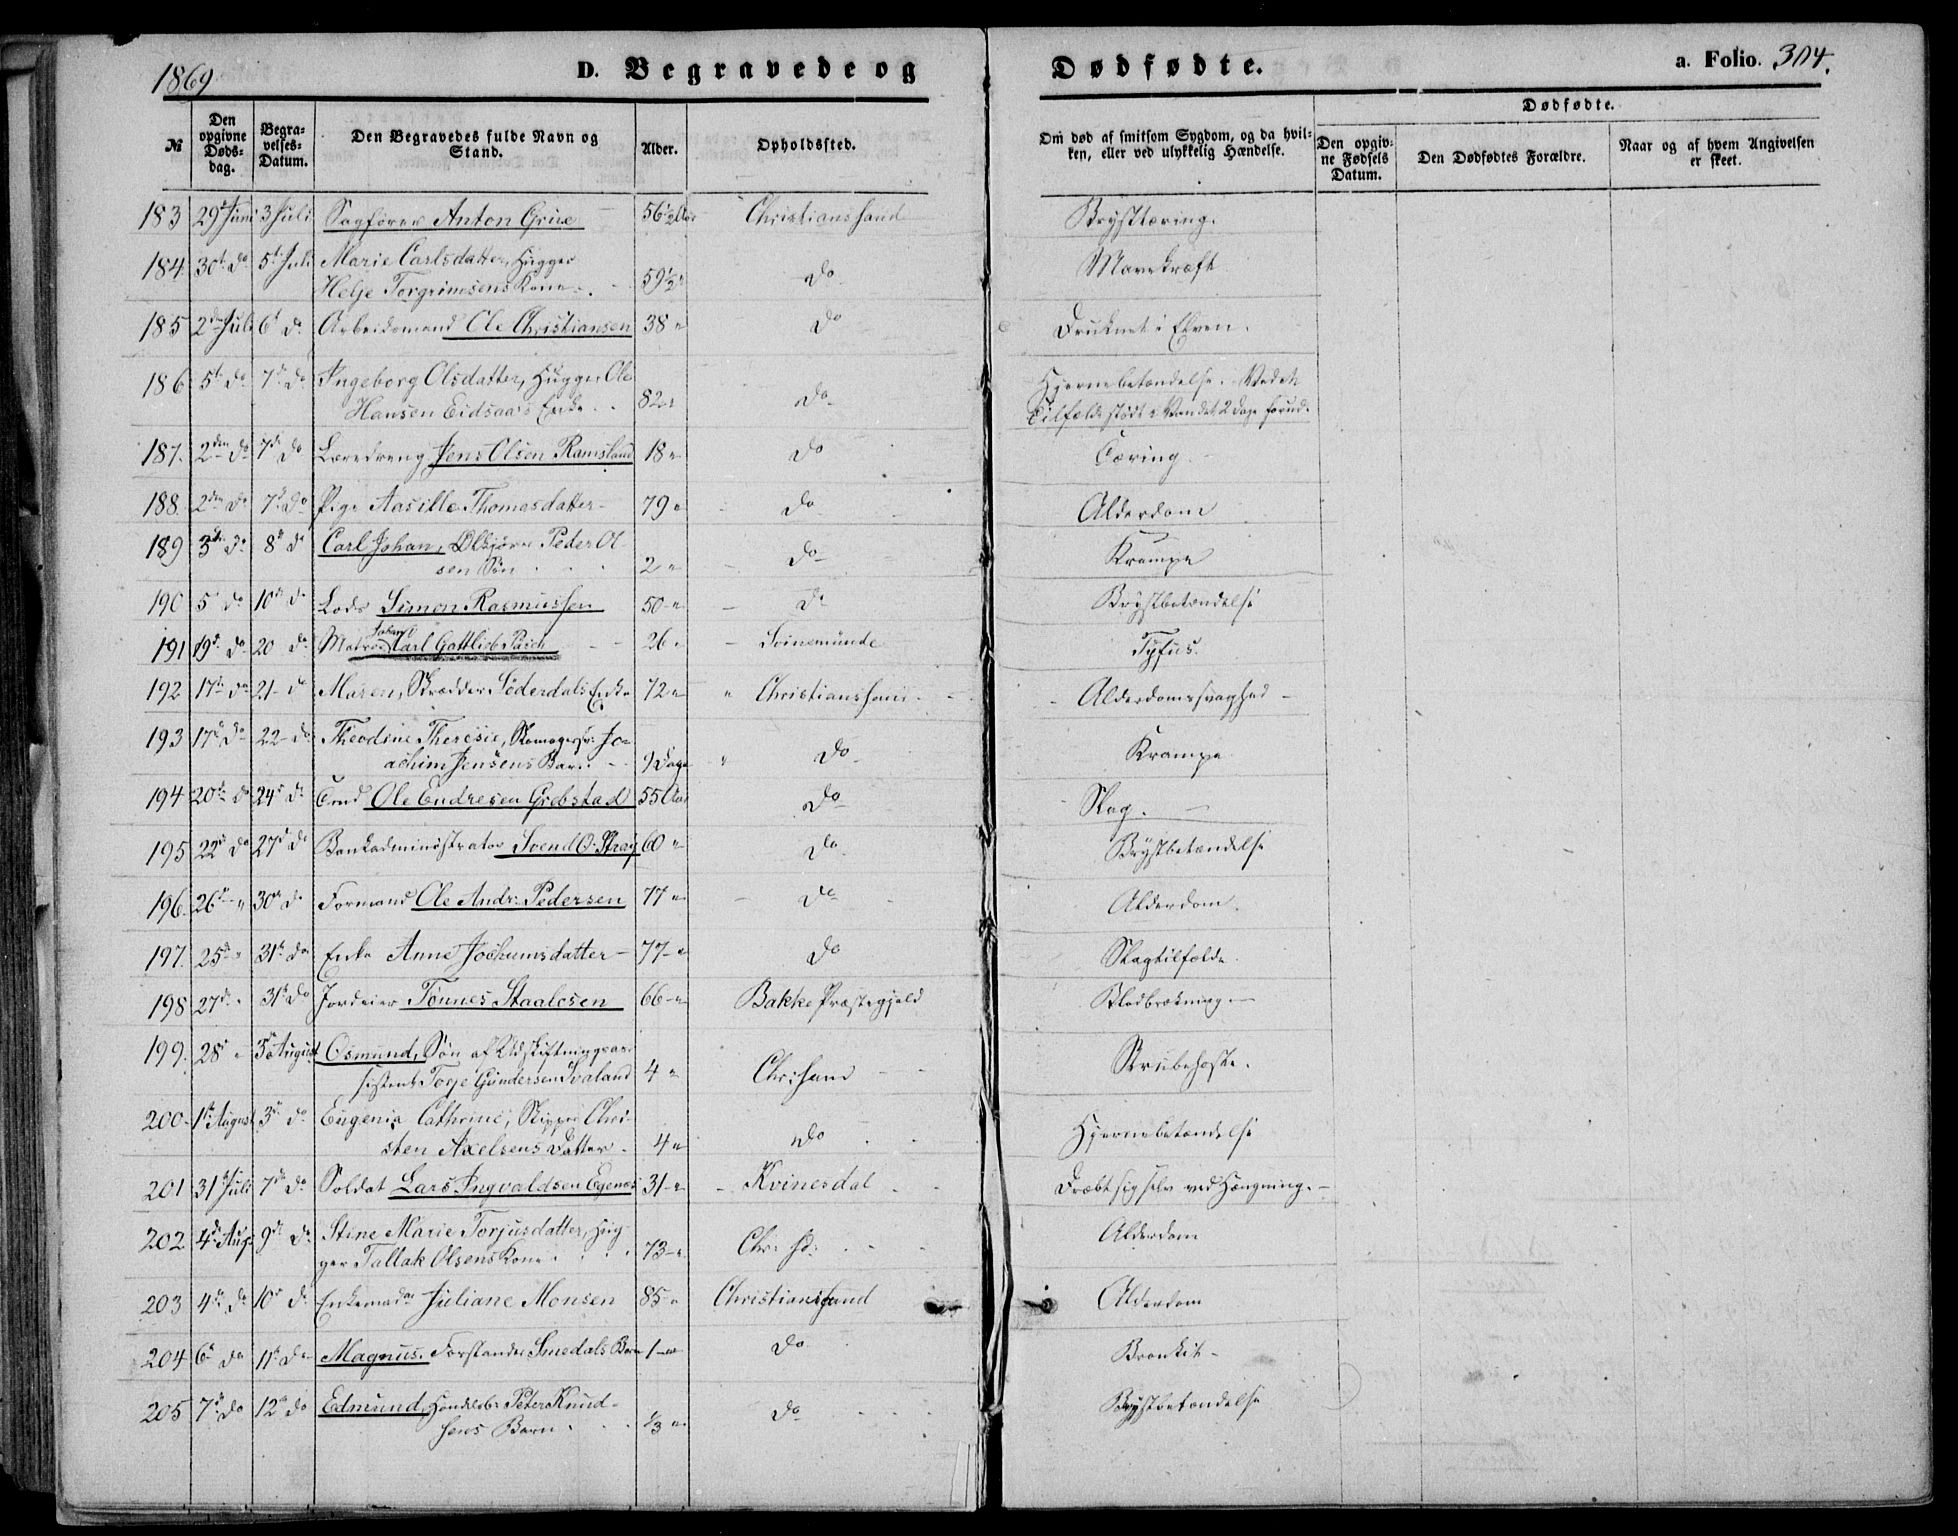 1869
D. Begravede og Dødfødte.
a. Folio. 304.
№ Den opgivne Dødsdag. Begravelses-Datum. Den Begravedes fulde Navn og Stand. Alder. Opholdssted. Om død af smitsom Sygdom, og da hvilken, eller ved ulykkelig Hændelse. Dødfødte.
Den opgivne Fødsels Datum. Den Dødfødtes Forældre. Naar og af hvem Angivelsen er skeet.
183 29d Juni 3 Juli Sagfører Anton Grüe 56 1/2 Aar Christianssand Brysttæring.
184 30t do 5t Juli Marie Carlsdatter, Hugger
Helje Torgrimsens Kone 59 1/2 " do Mavekræft
185 2den Juli 6t do Arbeidsmand Ole Christiansen 38 " do Druknet i Elven.
186 5t do 7d do Ingeborg Olsdatter, Hugger Ole
Hansen Eidsaas Enke 82 " do Hjernebetændelse. Ved et
Tilfælde stødt i Vandet 2 Dage forud.
187. 2den do 7d do Læredreng Jens Olsen Ramsland 18 " do Tæring
188. 2den do 7d do Pige Aasille Thomasdatter 79 " do Alderdom
189 3die do 8d do Carl Johan, Peder Ol-
sen Søn 2 " do Krampe
190 5 do 10d do Lods Simon Rasmussen 50 " do Brystbetændelse
191 19d do 20 do Matros Johan Carl Gottlieb Pasch 26 " Svinemünde Tyfus.
192 17d do 21 do Maren, Skrædder Söderdals Enke 72 " " Christianssand Alderdomssvaghed
193 17d do 22 do Theodine Theresie, Skomagersv. Jo-
achim Jensens Barn 9 Dage " do Krampe
194 20d do 24d do Ole Endresen Grøbstad 55 Aar do Slag.
195 22d do 27d do Bankadministrator Svend O. Stray 60 " do Brystbetændelse
196. 26d " 30d do Formand Ole Andr: Pedersen 77 " do Alderdom.
197. 25d " 31t do Enke Anne Jochumsdatter 77 " do Slagtilfælde.
198 27d " 31t do Jordeier Tönnes Staalesen 66 " Bakke Præstegjeld Blodbrækning.
199. 28d " 3d August Osmund, Søn af Udskiftningsas-
sistent Torje Gundersen Svaland 4 " Chr:sand Strubehoste.
200. 1t August 3d do Eugenia Cathrine, Skipper Chri-
sten Axelsens Datter 4 " do Hjernebetændelse
201 31t Juli 7d do Soldat Lars Ingvaldsen Egenes 31 " Kvinesdal Dræbt sig selv ved Hængning.
202 4d Aug. 9d do Stine Marie Torjusdatter, Hug-
ger Tallak Olsens Kone 73 " Chr: sd: Alderdom
203 4d do 10d do Enkemadam Juliane Monsen 85 " Christianssand Alderdom
204 6t do 11t do Magnus. Forstander Smedals Barn 1 " do Bronkit
205 7d do 12d do Edmund, Handelsb: Peter Knud-
sens Barn 1/3 " do Brystbetændelse